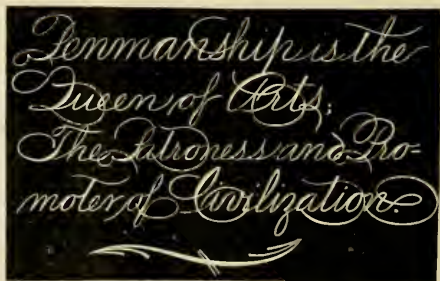 Penmanship is the
Queen of Arts;
The Patroness and Pro-
moter of Civilization.